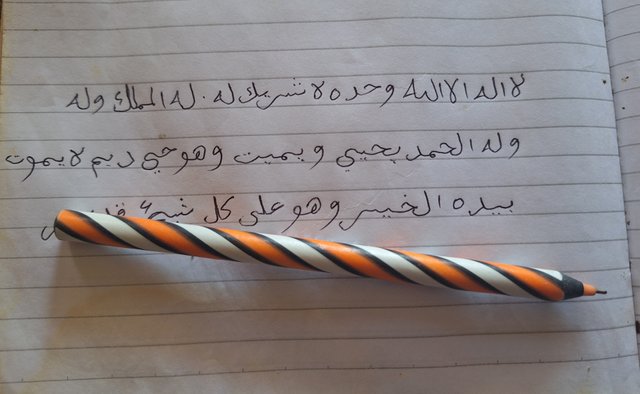 لا اله الا الله وحده لا شريك له. له الملك وله
وله الحمد يحيي ويميت وهو حي ديم لا يموت
بيده الخير وهو على كل شيء